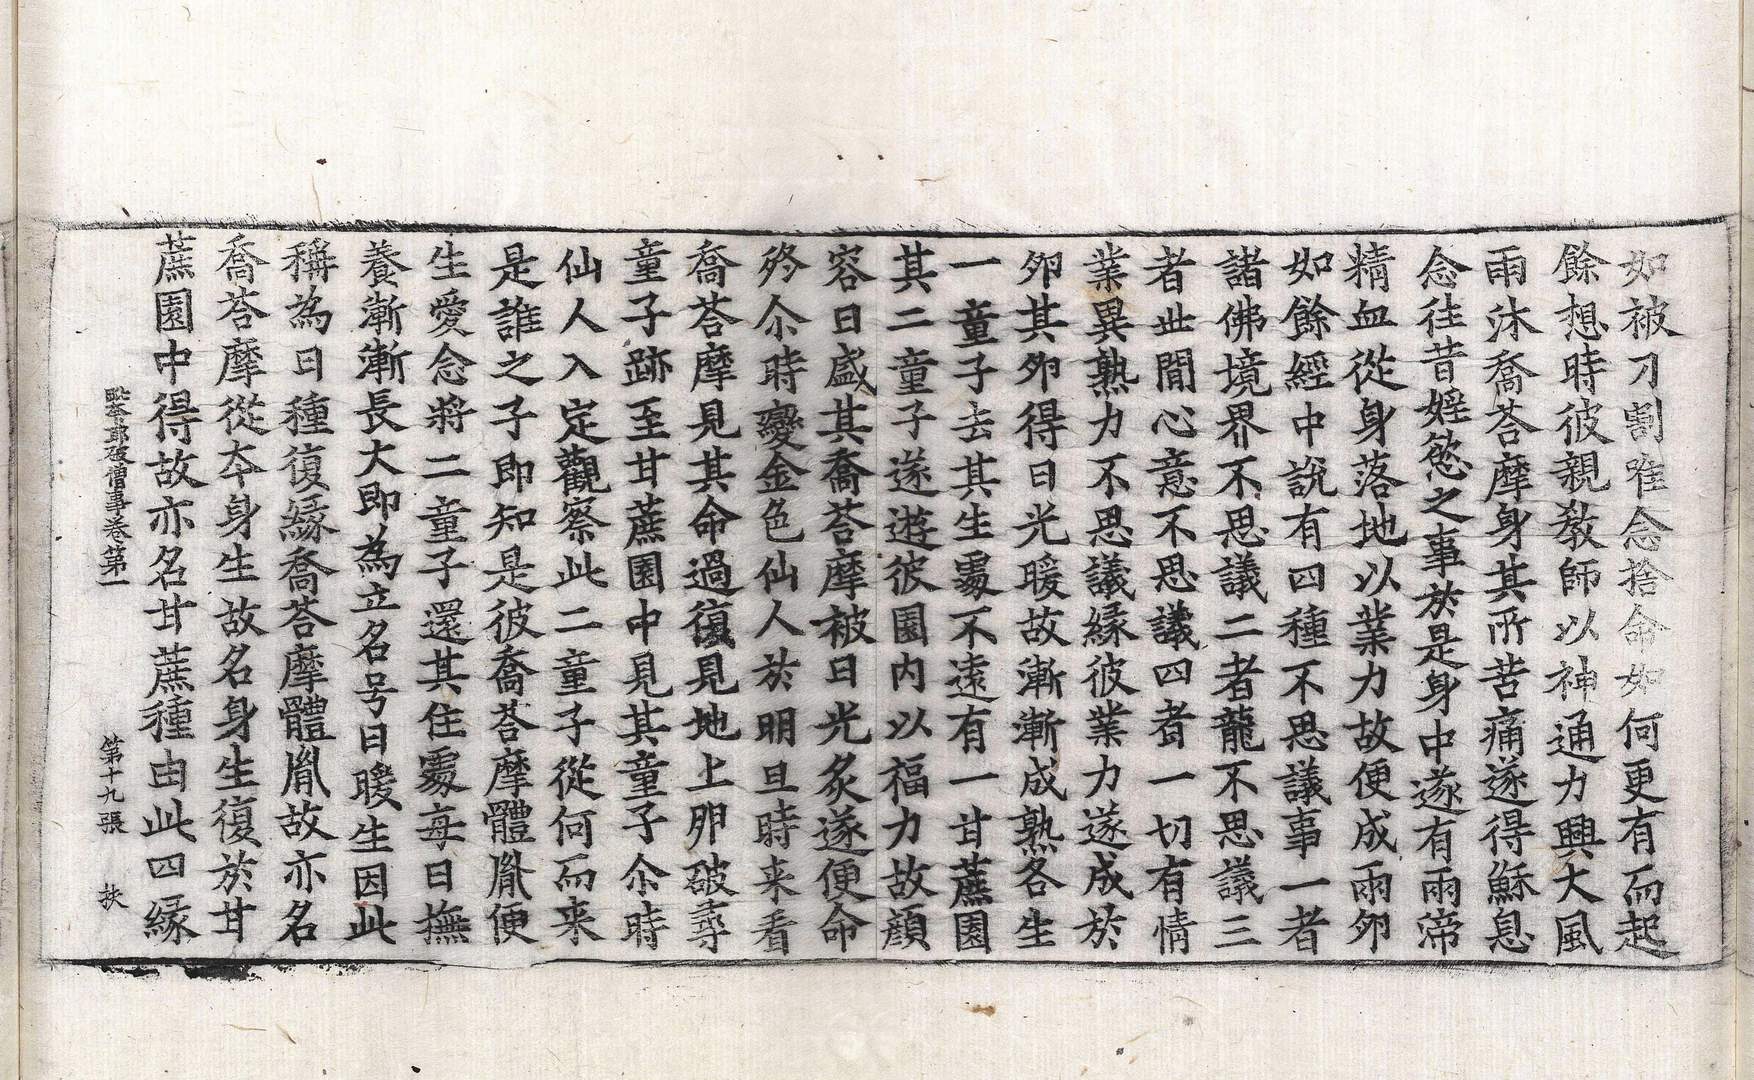 如被刀割唯念捨命如何更有而起
餘想時彼親敎師以神通力興大風
雨沐喬荅摩身其所苦痛遂得穌息
念往昔婬慾之事於是身中遂有兩渧
精血從身落地以業力故便成兩夘
如餘經中說有四種不思議事一者
諸佛境界不思議二者龍不思議三
者世間心意不思議四者一切有情
業異熟力不思議緣彼業力遂成於
夘其夘得日光暖故漸漸成熟各生
一童子去其生䖏不遠有一甘蔗園
其二童子遂遊彼園内以福力故顔
容日盛其喬荅摩被日光炙遂便命
終尒時變金色仙人於明旦時来看
喬荅摩見其命過復見地上夘破尋
童子跡至甘蔗園中見其童子尒時
仙人入定觀察此二童子從何而来
是誰之子即知是彼喬荅摩體胤便
生愛念將二童子還其住䖏每日撫
養漸漸長大即為立名号日暖生因此
稱為日種復緣喬荅摩體胤故亦名
喬荅摩從夲身生故名身生復於甘
蔗園中得故亦名甘蔗種由此四緣
毗奈耶破僧事卷第一 第十九張 扶